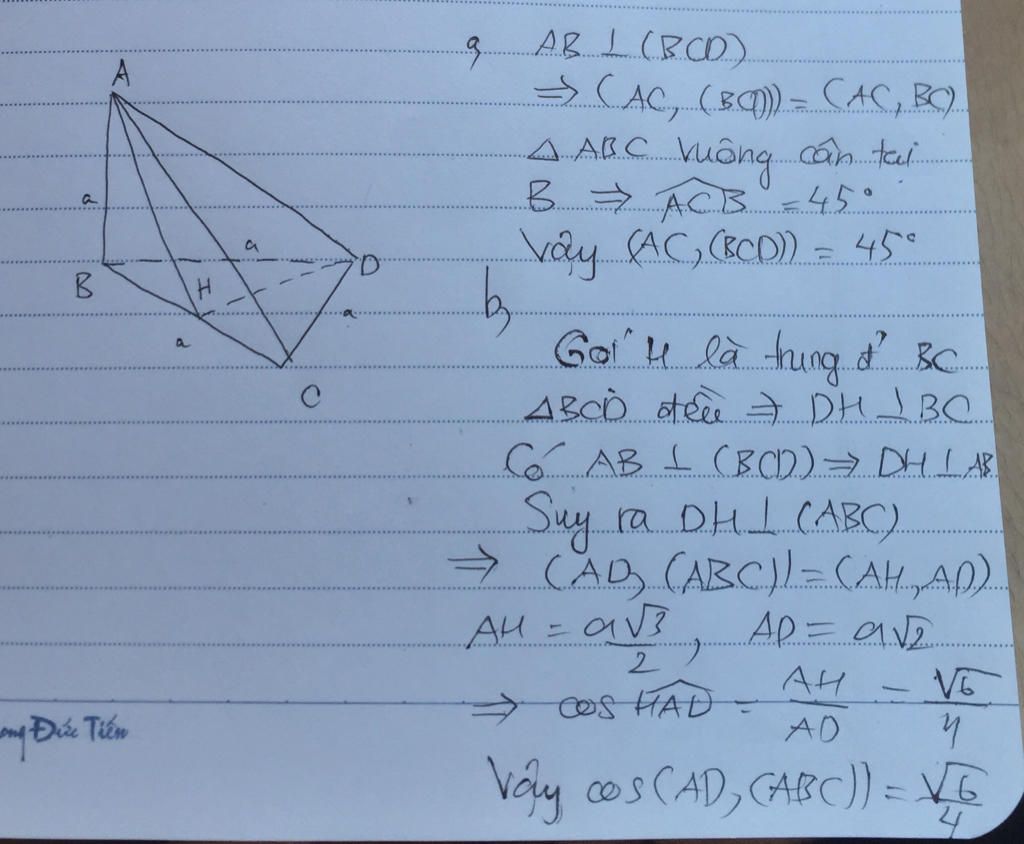 A
a
a
B
H
D
a
a
C
a, AB ⊥ (BCD)
⇒ (AC, (BCD)) = (AC, BC)
△ ABC vuông cân tại
B ⇒ \widehat{ACB} = 45°
Vậy (AC, (BCD)) = 45°
b,
Gọi H là trung đ' BC
△BCD đều ⇒ DH ⊥ BC
Có AB ⊥ (BCD) ⇒ DH ⊥ AB
Suy ra DH ⊥ (ABC)
⇒ (AD, (ABC)) = (AH, AD)
AH = \frac{a\sqrt{3}}{2}, AD = a\sqrt{2}
⇒ cos \widehat{HAD} = \frac{AH}{AD} = \frac{\sqrt{6}}{4}
Vậy cos(AD, (ABC)) = \frac{\sqrt{6}}{4}
ong Đức Tiến